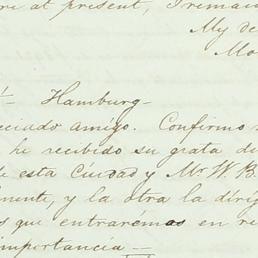 at present, I remain
My
Hamburg -
amigo. Confirmo
he recibido su grata
esta Ciudad y Mr. W. B.
y la otra la
que entrarémos en
importancia -